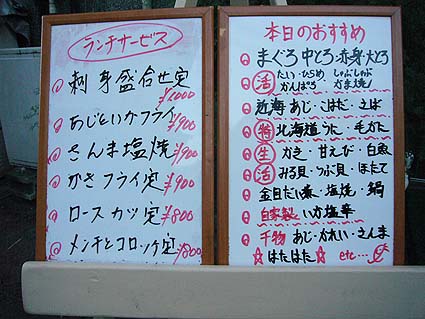 ランチサービス
刺身盛合せ定 ¥1000
あじといかフライ ¥900
さんま塩焼 ¥900
かきフライ定 ¥900
ロースカツ定 ¥800
メンチとコロッケ定 ¥800
本日のおすすめ
まぐろ 中とろ・赤身・大とろ
活 たい・ひらめ しゃぶしゃぶ
かんぱち かま焼し
近海 あじ・こはだ・えぼ
特 北海道 うに・毛がに
生 かき・甘えび・白魚
活 みる貝・つぶ貝・ほたて
金目だい 煮・塩焼・鍋
自家製 いか塩辛
干物 あじ・かれい・さんま
☆はたはた☆ etc…